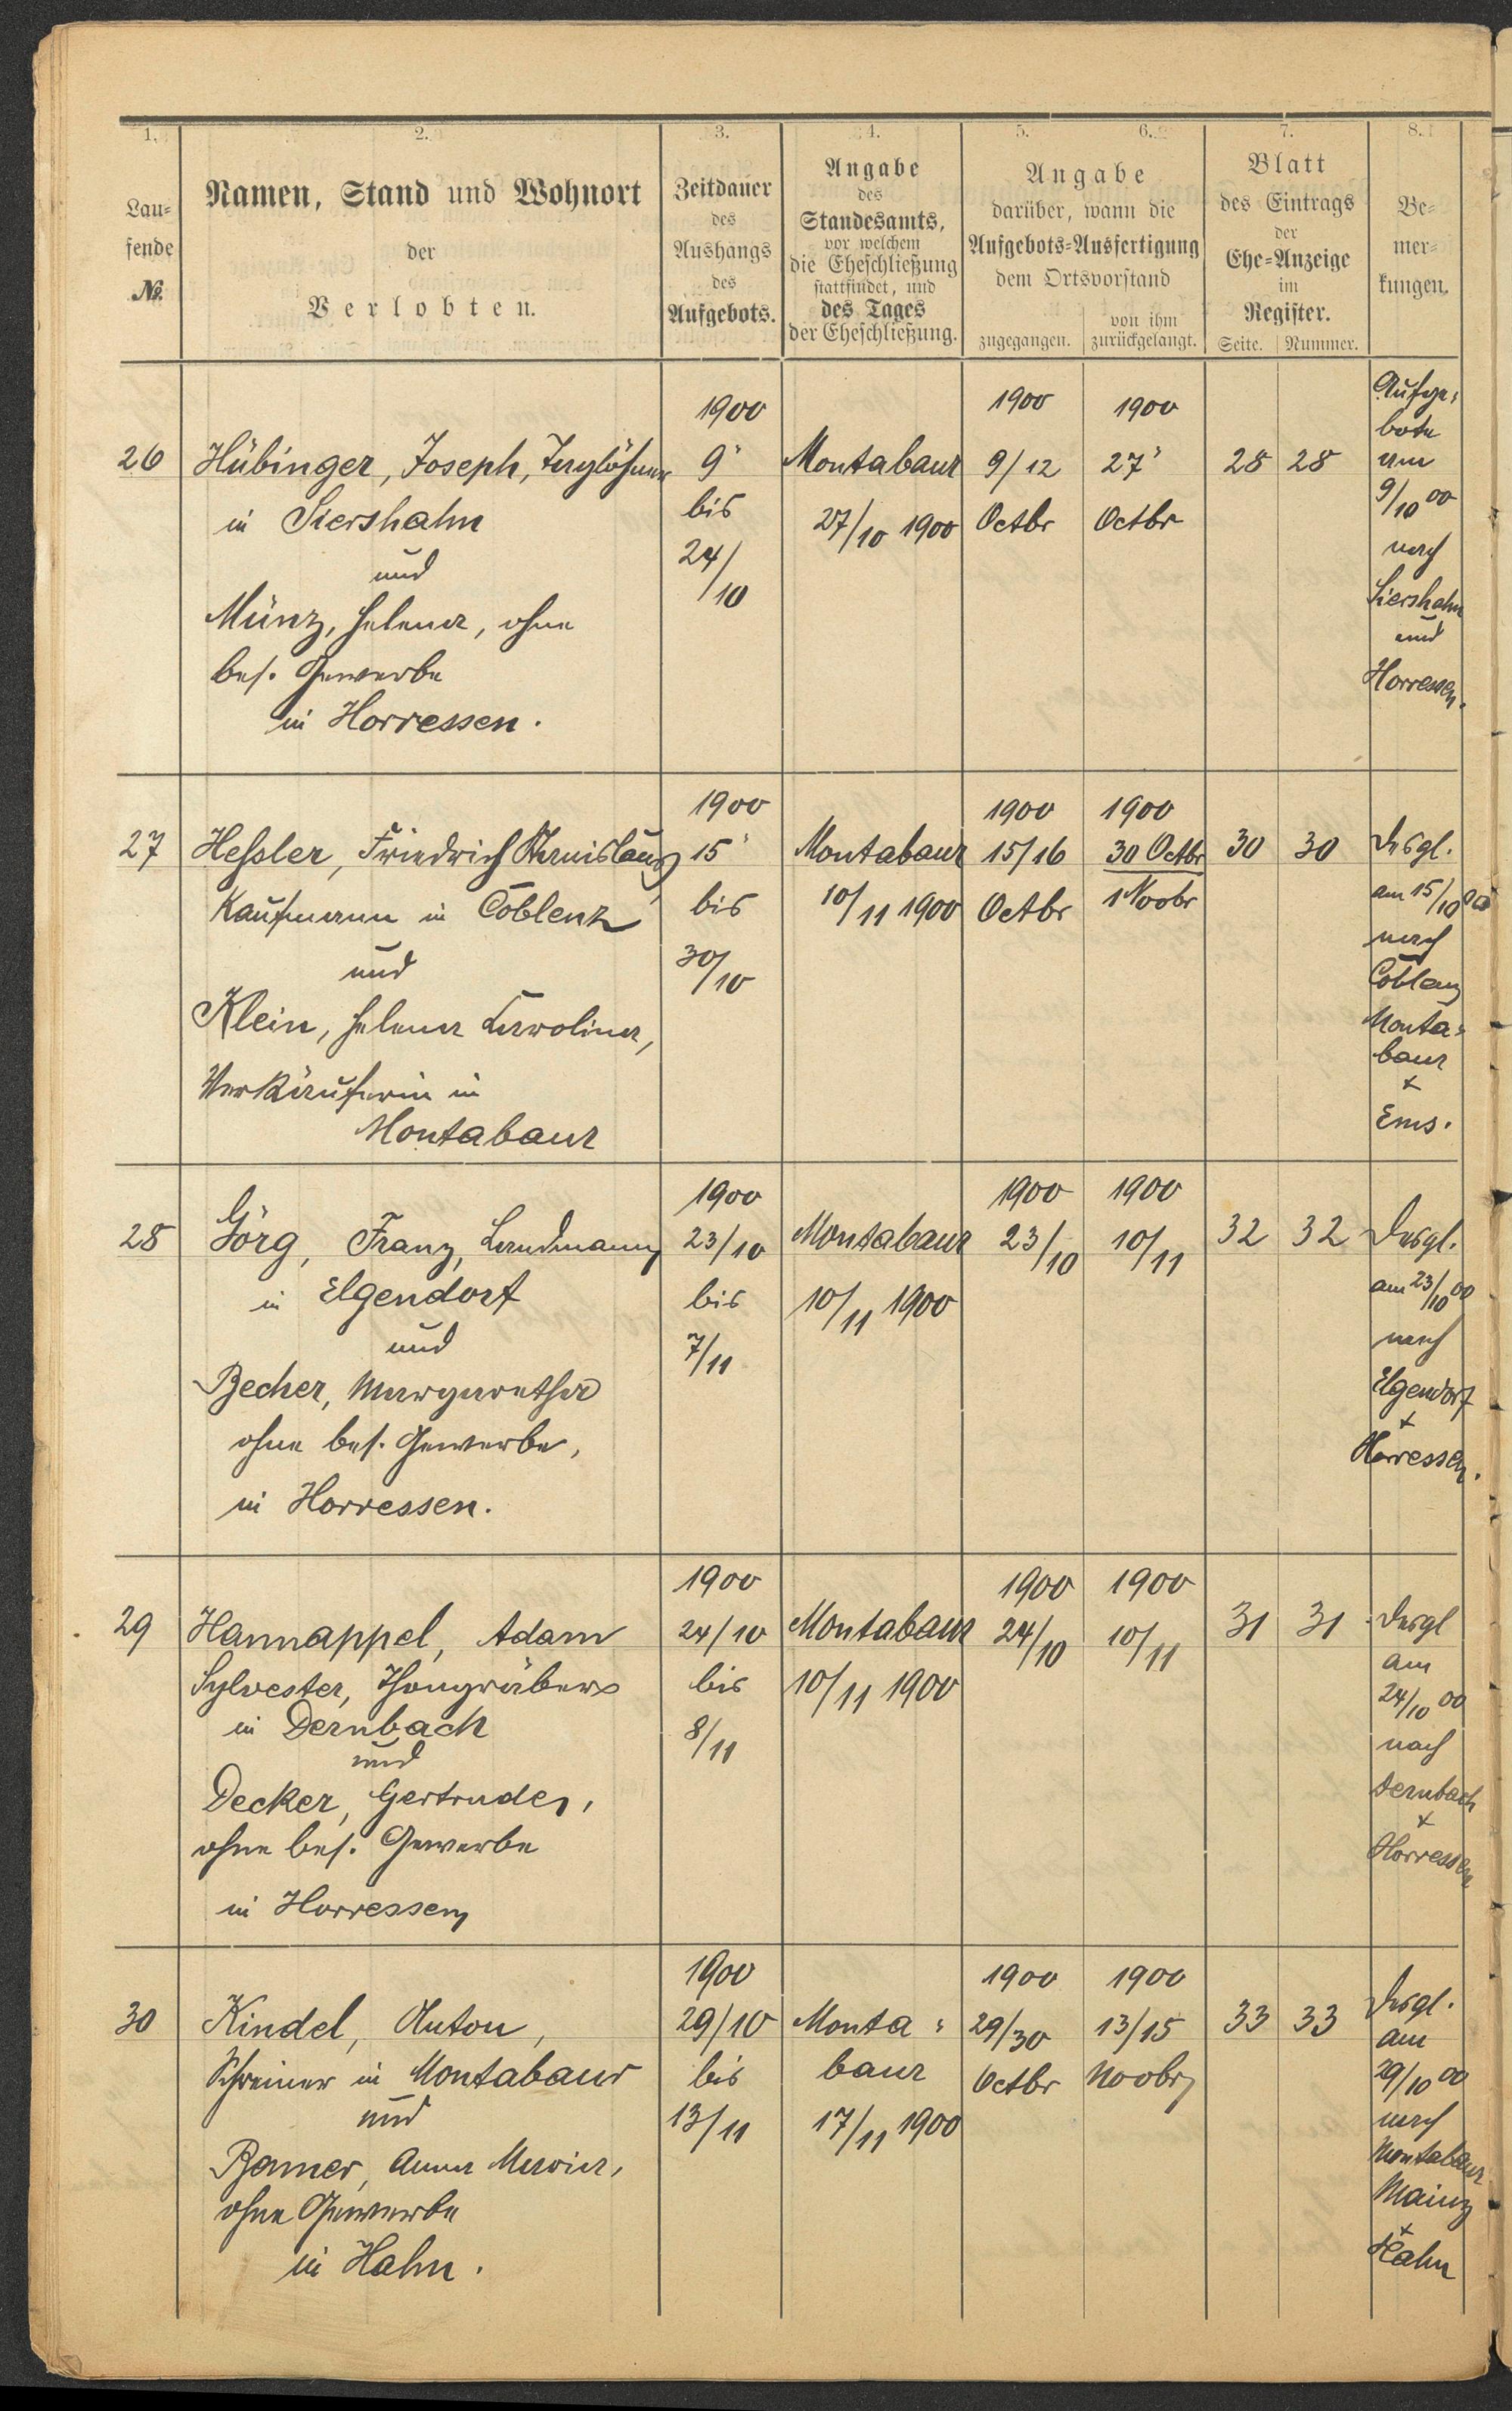 1. 2. 3. 4. 5. 6. 7. 8.
Laufende №.
Namen, Stand und Wohnort
der
Verlobten.
Zeitdauer
des
Aushangs
des
Aufgebots.
Angabe
des
Standesamts,
vor welchem
die Eheschließung
stattfindet, und
des Tages
der Eheschließung.
Angabe
darüber, wann die
Aufgebots-Ausfertigung
dem Ortsvorstand
zugegangen.
von ihm
zurückgelangt.
Blatt
des Eintrags
der
Ehe-Anzeige
im
Register.
Seite. Nummer.
Be-
mer-
kungen.
26
Hübinger, Joseph, Taglöhner
in Siershahn
und
Münz, Helena, ohne
bes. Gewerbe
in Horressen.
1900
9"
bis
24/
/10
Montabaur
27/10 1900
1900
9/12
Octbr
1900
27"
Octbr
28 28
Aufge-
bote
am
9/10 00
nach
Siershahn
und
Horressen.
27
Heßler, Friedrich
Kaufmann in Coblenz
und
Klein, Helena Karolina,
Verkäuferin in
Montabaur
1900
15"
bis
30/10
Montabaur
10/11 1900
1900
15/16
Octbr
1900
30 Octbr
1 Novbr
30 30
Desgl.
am 15/10 00
nach
Coblenz
Monta-
baur
+
Ems.
28
Görg, Franz, Landmann
in Elgendorf
und
Becher, Margaretha
ohne bes. Gewerbe,
in Horressen.
1900
23/10
bis
7/11
Montabaur
10/11 1900
1900
23/10
1900
10/11
32 32
Desgl.
am 23/10 00
nach
Elgendorf
+
Horressen.
29
Hannappel, Adam
Sylvester, Thongräber
in Dernbach
und
Decker, Gertrude,
ohne bes. Gewerbe
in Horressen
1900
24/10
bis
8/11
Montabaur
10/11 1900
1900
24/10
1900
10/11
31 31
Desgl
am
24/10 00
nach
Dernbach
+
Horressen
30
Kindel, Anton,
Schreiner in Montabaur
und
Anna Maria,
ohne Gewerbe
in Hahn.
1900
29/10
bis
13/11
Monta-
baur
17/11 1900
1900
29/30
Octbr
1900
13/15
Novbr
33 33
Desgl.
am
29/10 00
nach
Montabaur
Mainz
+
Hahn